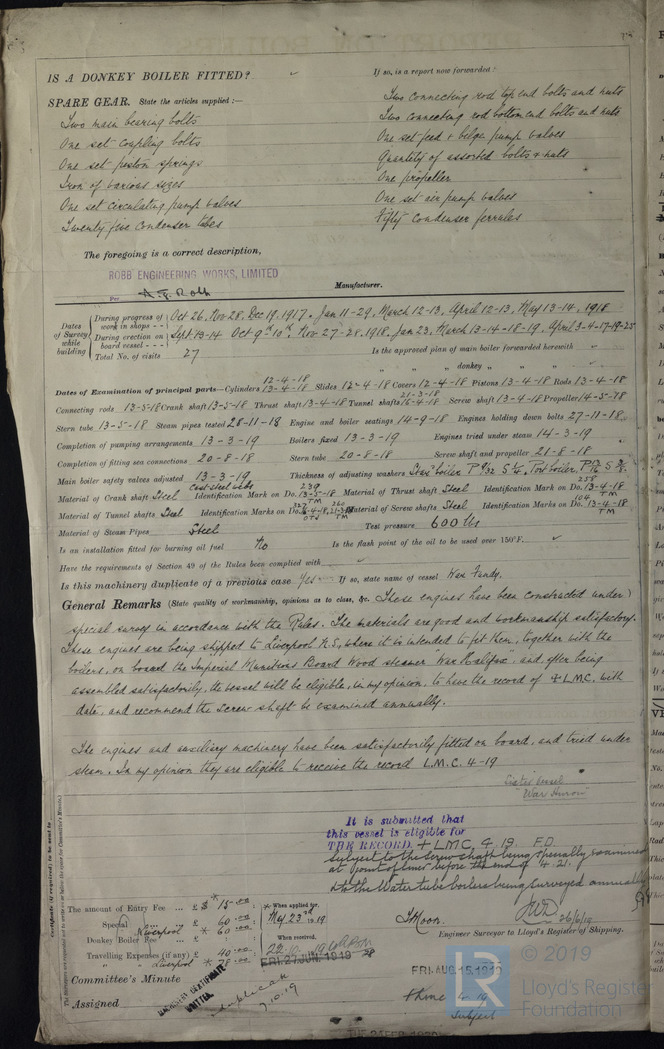 IS A DONKEY BOILER FITTED?
If so, is a report now forwarded?
SPARE GEAR. State the articles supplied:—
Two connecting rod top end bolts and nuts
Two main bearing bolts
Two connecting rod bottom end bolts and nuts
One set coupling bolts
One set feed + bilge pump valves
One set piston springs
Quantity of assorted bolts + nuts
Iron of various sizes
One propeller
One set circulating pump valves
One set air pump valves
Twenty five condenser tubes
Fifty condenser ferrules
The foregoing is a correct description,
ROBB ENGINEERING WORKS, LIMITED
Manufacturer.
Per
Dates of Survey while building
During progress of work in shops - - Oct 26, Nov 28, Dec 19, 1917. Jan 11-29, March 12-13, April 12-13, May 13-14, 1918
During erection on board vessel - - - Sept. 13-14 Oct 9th 10th, Nov 27-28, 1918. Jan 23, March 13-14-18-19, April 3-4-17-19-25
Total No. of visits 27
Is the approved plan of main boiler forwarded herewith
" " " donkey " " "
Dates of Examination of principal parts—Cylinders 12-4-18 13-4-18 Slides 12-4-18 Covers 12-4-18 Pistons 13-4-18 Rods 13-4-18
Connecting rods 13-5-18 Crank shaft 13-5-18 Thrust shaft 13-4-18 Tunnel shafts 21-3-18 16-4-18 Screw shaft 13-4-18 Propeller 14-5-18
Stern tube 13-5-18 Steam pipes tested 28-11-18 Engine and boiler seatings 14-9-18 Engines holding down bolts 27-11-18
Completion of pumping arrangements 13-3-19 Boilers fixed 13-3-19 Engines tried under steam 14-3-19
Completion of fitting sea connections 20-8-18 Stern tube 20-8-18 Screw shaft and propeller 21-8-18
Main boiler safety valves adjusted 13-3-19 Thickness of adjusting washers Star boiler Port boiler
Material of Crank shaft Steel Identification Mark on Do. 239 13-5-18 TM Material of Thrust shaft Steel Identification Mark on Do. 258 13-4-18 TM
Material of Tunnel shafts Steel Identification Marks on Do. Material of Screw shafts Steel Identification Marks on Do. 104 13-4-18 TM
Material of Steam Pipes Steel Test pressure 600 lbs
Is an installation fitted for burning oil fuel No Is the flash point of the oil to be used over 150°F.
Have the requirements of Section 49 of the Rules been complied with
Is this machinery duplicate of a previous case Yes If so, state name of vessel War Fundy.
General Remarks (State quality of workmanship, opinions as to class, &c. These engines have been constructed under
special survey in accordance with the Rules. The materials are good and workmanship satisfactory.
These engines are being shipped to Liverpool N.S, where it is intended to fit them, together with the
boilers, on board the Imperial Munitions Board Wood steamer "War Halifax" and, after being
assembled satisfactorily, the vessel will be eligible, in my opinion, to have the record of + L.M.C. with
date, and recommend the screw shaft be examined annually.
The engines and auxiliary machinery have been satisfactorily fitted on board, and tried under
steam. In my opinion they are eligible to receive the record L.M.C. 4-19
Sister vessel
"War Huron"
It is submitted that
this vessel is eligible for
THE RECORD. + LMC 4.19. FD.
Subject to the screw shaft being specially examined
at point of liner before the end of 4.21.
the Water tube boilers being surveyed annually
26/6/19
The amount of Entry Fee ... £ $ * 15.00
When applied for, May 23rd 1919
Special Liverpool ... £ 60.00 * 60.00
Donkey Boiler Fee ... £
When received,
Travelling Expenses (if any) £ 40.00
" " Liverpool * 78.00
FRI. 27 JUN. 1919
T Moon.
Engineer Surveyor to Lloyd's Register of Shipping.
Committee's Minute
FRI. AUG. 15. 1919
Assigned
MACHINERY CERTIFICATE WRITTEN
duplicate
7.10.19
Subject
© 2019
Lloyd's Register
Foundation